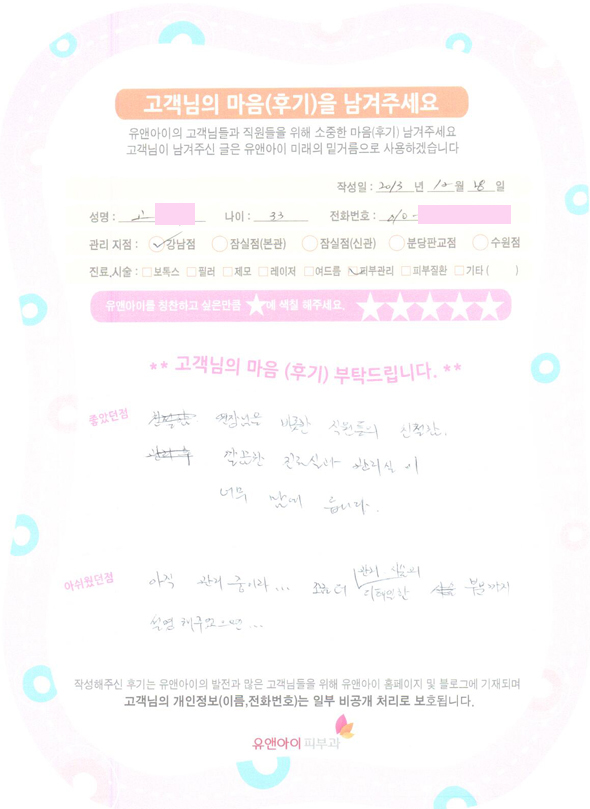 고객님의 마음(후기)을 남겨주세요
유앤아이의 고객님들과 직원들을 위해 소중한 마음(후기) 남겨주세요
고객님이 남겨주신 글은 유앤아이 미래의 밑거름으로 사용하겠습니다
작성일 : 2013 년 12 월 28 일
성명 : 나이 : 33 전화번호 : 010 -
관리 지점 : 강남점 잠실점(본관) 잠실점(신관) 분당판교점 수원점
진료,시술 : 보톡스 필러 제모 레이저 여드름 피부관리 피부질환 기타 ( )
유앤아이를 칭찬하고 싶은만큼 ★에 색칠 해주세요. ★★★★★
** 고객님의 마음 (후기) 부탁드립니다. **
좋았던점 원장님을 비롯한 직원들의 친절함.
깔끔한 진료실과 관리실 이
너무 맘에 듭니다.
아쉬웠던점 아직 관리 중이라... 조금 더 관리 시술의 디테일한 부분까지
설명 해주셨으면...
작성해주신 후기는 유앤아이의 발전과 많은 고객님들을 위해 유앤아이 홈페이지 및 블로그에 기재되며
고객님의 개인정보(이름,전화번호)는 일부 비공개 처리로 보호됩니다.
유앤아이 피부과